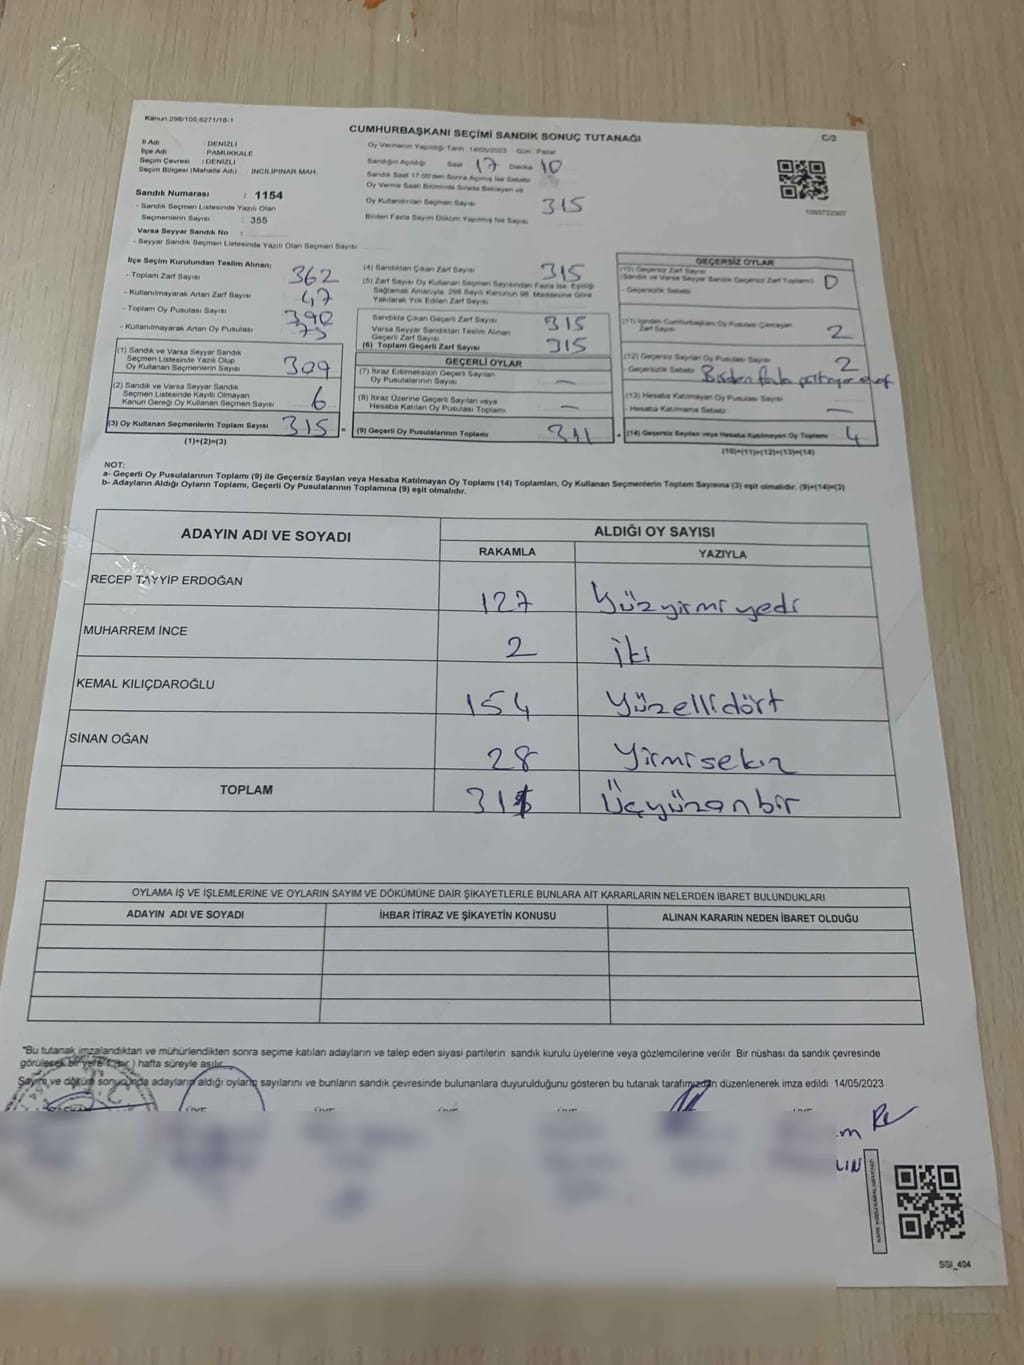 Kanun:298/105,6271/16-1
CUMHURBAŞKANI SEÇİMİ SANDIK SONUÇ TUTANAĞI
C/2
İl Adı : DENİZLİ
İlçe Adı : PAMUKKALE
Seçim Çevresi : DENİZLİ
Seçim Bölgesi (Mahalle Adı) : İNCİLİPINAR MAH.
Sandık Numarası : 1154
- Sandık Seçmen Listesinde Yazılı Olan
Seçmenlerin Sayısı : 355
Varsa Seyyar Sandık No :
- Seyyar Sandık Seçmen Listesinde Yazılı Olan Seçmen Sayısı
Oy Vermenin Yapıldığı Tarih : 14/05/2023 Gün : Pazar
Sandığın Açıldığı Saat 17 Dakika 10
Sandık Saat 17:00'den Sonra Açılmış İse Sebebi
Oy Verme Saati Bitiminde Sırada Bekleyen ve
Oy Kullandırılan Seçmen Sayısı 315
Birden Fazla Sayım Döküm Yapılmış İse Sayısı
İlçe Seçim Kurulundan Teslim Alınan;
- Toplam Zarf Sayısı 362
- Kullanılmayarak Artan Zarf Sayısı 47
- Toplam Oy Pusulası Sayısı 390
- Kullanılmayarak Artan Oy Pusulası 75
(1) Sandık ve Varsa Seyyar Sandık
Seçmen Listesinde Yazılı Olup
Oy Kullanan Seçmenlerin Sayısı 309
(2) Sandık ve Varsa Seyyar Sandık
Seçmen Listesinde Kayıtlı Olmayan
Kanun Gereği Oy Kullanan Seçmen Sayısı 6
(3) Oy Kullanan Seçmenlerin Toplam Sayısı 315
(1)+(2)=(3)
(4) Sandıktan Çıkan Zarf Sayısı 315
(5) Zarf Sayısı Oy Kullanan Seçmen Sayısından Fazla İse, Eşitliği
Sağlamak Amacıyla, 298 Sayılı Kanunun 98. Maddesine Göre
Yakılarak Yok Edilen Zarf Sayısı
Sandıkta Çıkan Geçerli Zarf Sayısı 315
Varsa Seyyar Sandıktan Teslim Alınan
Geçerli Zarf Sayısı
(6) Toplam Geçerli Zarf Sayısı 315
GEÇERLİ OYLAR
(7) İtiraz Edilmeksizin Geçerli Sayılan
Oy Pusulalarının Sayısı —
(8) İtiraz Üzerine Geçerli Sayılan veya
Hesaba Katılan Oy Pusulası Toplamı —
= (9) Geçerli Oy Pusulalarının Toplamı 311
GEÇERSİZ OYLAR
(10) Geçersiz Zarf Sayısı
(Sandık ve Varsa Seyyar Sandık Geçersiz Zarf Toplamı) 0
- Geçersizlik Sebebi
(11) İçinden Cumhurbaşkanı Oy Pusulası Çıkmayan
Zarf Sayısı 2
(12) Geçersiz Sayılan Oy Pusulası Sayısı 2
- Geçersizlik Sebebi Birden fazla
(13) Hesaba Katılmayan Oy Pusulası Sayısı
- Hesaba Katılmama Sebebi —
+ (14) Geçersiz Sayılan veya Hesaba Katılmayan Oy Toplamı 4
(10)+(11)+(12)+(13)=(14)
NOT:
a- Geçerli Oy Pusulalarının Toplamı (9) ile Geçersiz Sayılan veya Hesaba Katılmayan Oy Toplamı (14) Toplamları, Oy Kullanan Seçmenlerin Toplam Sayısına (3) eşit olmalıdır. (9)+(14)=(3)
b- Adayların Aldığı Oyların Toplamı, Geçerli Oy Pusulalarının Toplamına (9) eşit olmalıdır.
ADAYIN ADI VE SOYADI
ALDIĞI OY SAYISI
RAKAMLA YAZIYLA
RECEP TAYYİP ERDOĞAN 127 Yüzyirmi yedi
MUHARREM İNCE 2 İki
KEMAL KILIÇDAROĞLU 154 Yüzellidört
SİNAN OĞAN 28 Yirmisekiz
TOPLAM 311 Üçyüzonbir
OYLAMA İŞ VE İŞLEMLERİNE VE OYLARIN SAYIM VE DÖKÜMÜNE DAİR ŞİKAYETLERLE BUNLARA AİT KARARLARIN NELERDEN İBARET BULUNDUKLARI
ADAYIN ADI VE SOYADI İHBAR İTİRAZ VE ŞİKAYETİN KONUSU ALINAN KARARIN NEDEN İBARET OLDUĞU
"Bu tutanak imzalandıktan ve mühürlendikten sonra seçime katılan adayların ve talep eden siyasi partilerin sandık kurulu üyelerine veya gözlemcilerine verilir. Bir nüshası da sandık çevresinde
görülecek bir yere 1 (bir ) hafta süreyle asılır.
Sayım ve döküm sonucunda adayların aldığı oyların sayılarını ve bunların sandık çevresinde bulunanlara duyurulduğunu gösteren bu tutanak tarafımızdan düzenlenerek imza edildi. 14/05/2023
SSI_404